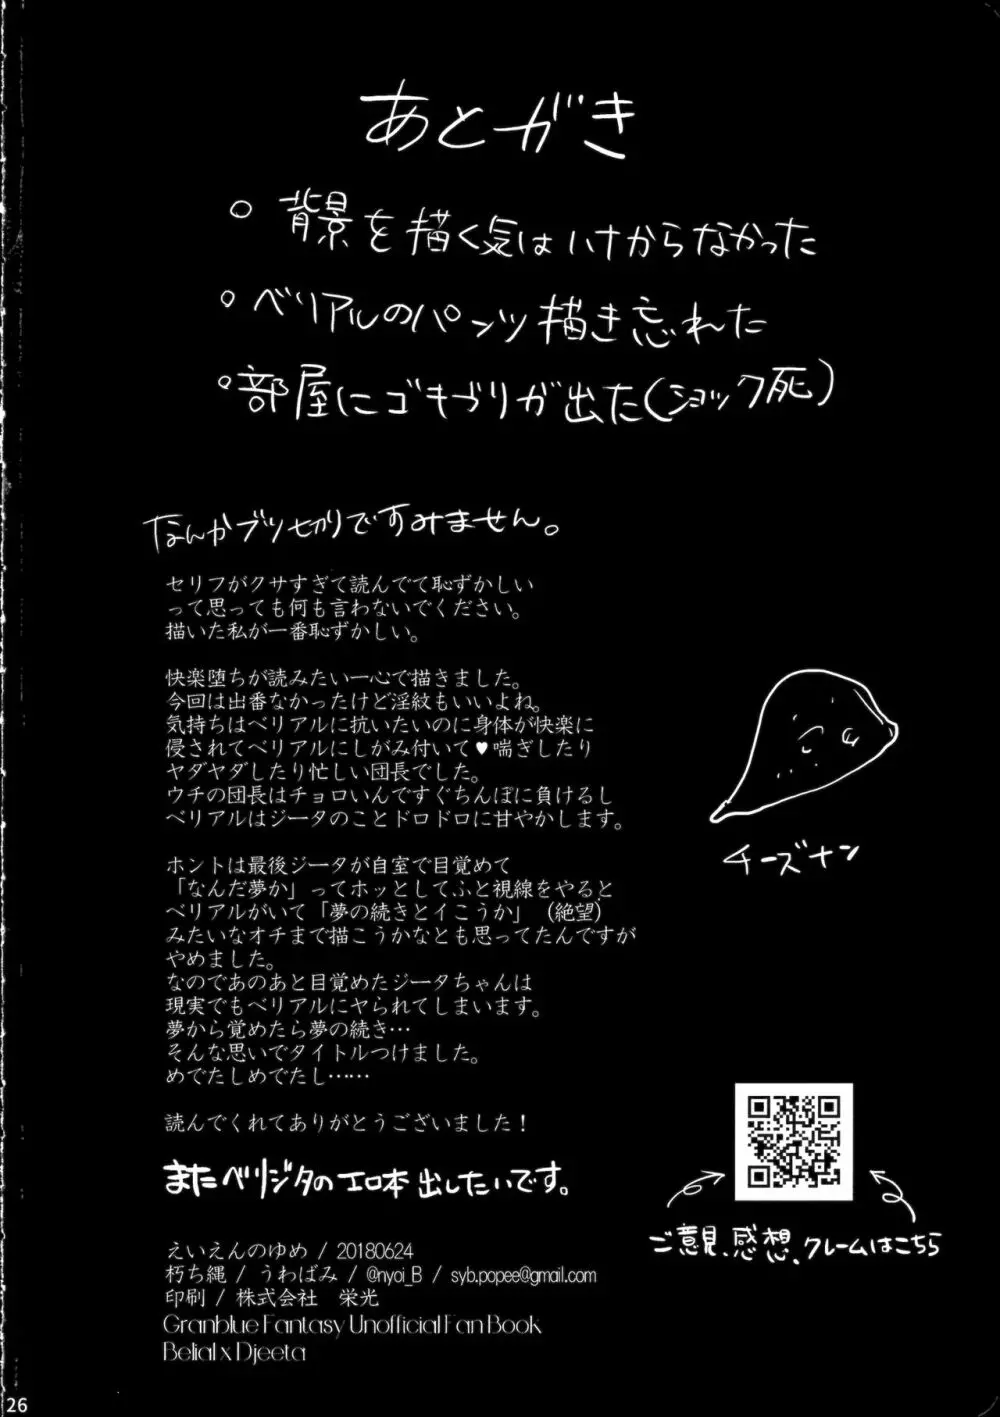 あとがき
。背景を描く気はハナからなかった
。ベリアルのパンツ描き忘れた
。部屋にゴキブリが出た(ショック死)
なんかブツ切りですみません。
セリフがクサすぎて読んでて恥ずかしい
って思っても何も言わないでください。
描いた私が一番恥ずかしい。
快楽堕ちが読みたい一心で描きました。
今回は出番なかったけど淫紋もいいよね。
気持ちはベリアルに抗いたいのに身体が快楽に
侵されてベリアルにしがみ付いて♥喘ぎしたり
ヤダヤダしたり忙しい団長でした。
ウチの団長はチョロいんですぐちんぽに負けるし
ベリアルはジータのことドロドロに甘やかします。
ホントは最後ジータが自室で目覚めて
「なんだ夢か」ってホッとしてふと視線をやると
ベリアルがいて「夢の続きとイこうか」（絶望）
みたいなオチまで描こうかなとも思ってたんですが
やめました。
なのであのあと目覚めたジータちゃんは
現実でもベリアルにヤられてしまいます。
夢から覚めたら夢の続き…
そんな思いでタイトルつけました。
めでたしめでたし……
読んでくれてありがとうございました！
またベリジタのエロ本出したいです。
チーズナン
ご意見、感想、クレームはこちら
えいえんのゆめ / 20180624
朽ち縄 / うわばみ / @nyoi_B / syb.popee@gmail.com
印刷 / 株式会社 栄光
Granblue Fantasy Unofficial Fan Book
Belial x Djeeta
26